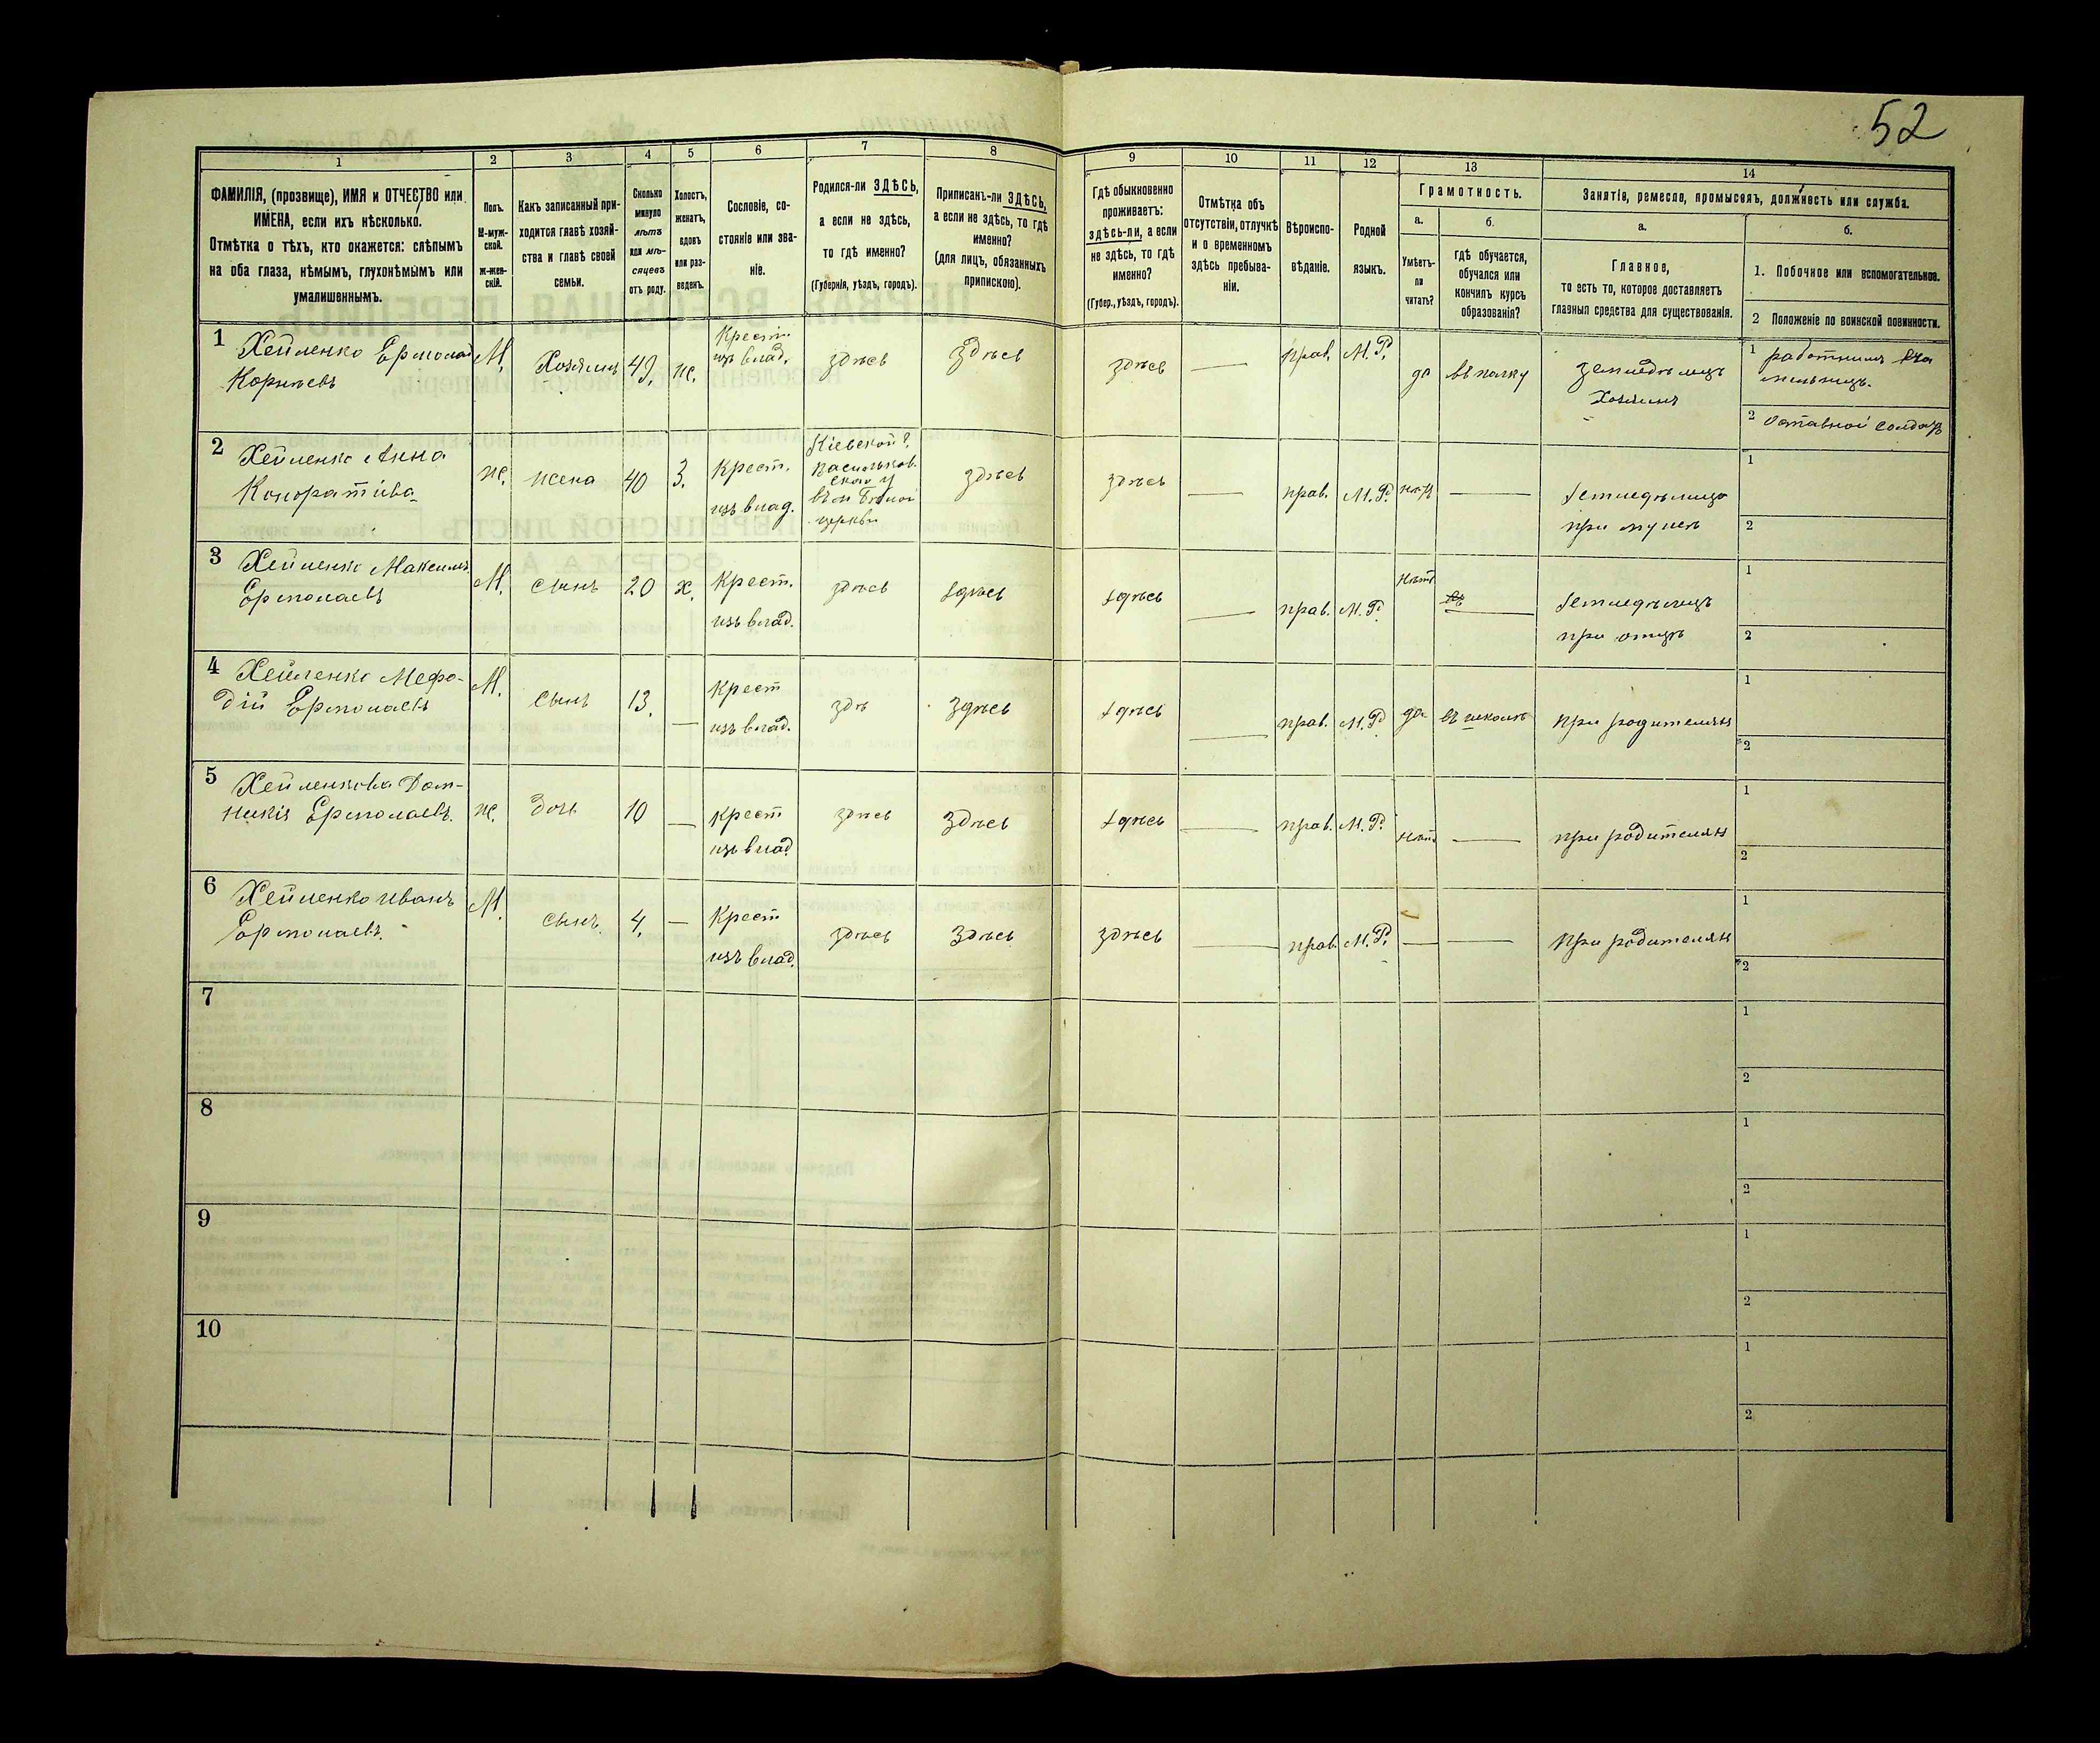 52
1 2 3 4 5 6 7 8 9 10 11 12 13 14
ФАМИЛІЯ, (прозвище), ИМЯ и ОТЧЕСТВО или
ИМЕНА, если ихъ нѣсколько.
Отмѣтка о тѣхъ, кто окажется: слѣпымъ
на оба глаза, нѣмымъ, глухонѣмымъ или
умалишеннымъ.
Полъ.
М-муж-
ской.
Ж-жен-
скій.
Какъ записанный при-
ходится главѣ хозяй-
ства и главѣ своей
семьи.
Сколько
минуло
лѣтъ
или мѣ-
сяцевъ
отъ роду.
Холостъ,
женатъ,
вдовъ
или раз-
веденъ.
Сословіе, со-
стояніе или зва-
ніе.
Родился-ли ЗДѢСЬ,
а если не здѣсь,
то гдѣ именно?
(Губернія, уѣздъ, городъ).
Приписанъ-ли ЗДѢСЬ,
а если не здѣсь, то гдѣ
именно?
(для лицъ, обязанныхъ
припискою).
Гдѣ обыкновенно
проживаетъ:
здѣсь-ли, а если
не здѣсь, то гдѣ
именно?
(Губер., уѣздъ, городъ).
Отмѣтка объ
отсутствіи, отлучкѣ
и о временномъ
здѣсь пребыва-
ніи.
Вѣроиспо-
вѣданіе.
Родной
языкъ.
Грамотность.
а.
Умѣетъ-
ли
читать?
б.
гдѣ обучается,
обучался или
кончилъ курсъ
образованія?
Занятія, ремесло, промыселъ, должность или служба.
а.
Главное,
то есть то, которое доставляетъ
главныя средства для существованія.
б.
1. Побочное или вспомогательное.
2 Положеніе по воинской повинности.
1 Хейленко Ермолай
Корнѣевъ
М. Хозяинъ 49. ж.
Крестн
изъ влад.
здѣсь здѣсь здѣсь — прав. М.Р. да въ полку
земледѣлецъ
Хозяинъ
1 работникъ на
мельницѣ.
2 Отставной солдатъ
2 Хейленко Анна
Кондратіева
ж. жена 40 З. Крест.
изъ влад.
Кіевской г.
Васильков
ского у
въ м Бѣлой
церкви
здѣсь здѣсь — прав. М.Р. нѣтъ —
Земледѣлица
при мужѣ
1
2
3 Хейленко Максимъ
Ермолаевъ
М. сынъ 20 х. Крест.
изъ влад.
здѣсь здѣсь здѣсь — прав. М.Р. нѣтъ —
Земледѣлецъ
при отцѣ
1
2
4 Хейленко Мефо-
дій Ермолаевъ
М. сынъ 13. — Крест
изъ влад.
здѣ здѣсь здѣсь — прав. М.Р. да въ школѣ при родителяхъ
1
2
5 Хейленкова Дом-
никія Ермолаевъ.
ж. дочь 10 — Крест
изъ влад
здѣсь здѣсь здѣсь — прав. М.Р. нѣтъ — при родителях
1
2
6 Хейленко Иванъ
Ермолаевъ.
М. сынъ. 4. — Крест
изъ влад.
здѣсь здѣсь здѣсь — прав. М.Р. — — При родителях
1
2
7
1
2
8
1
2
9
1
2
10
1
2